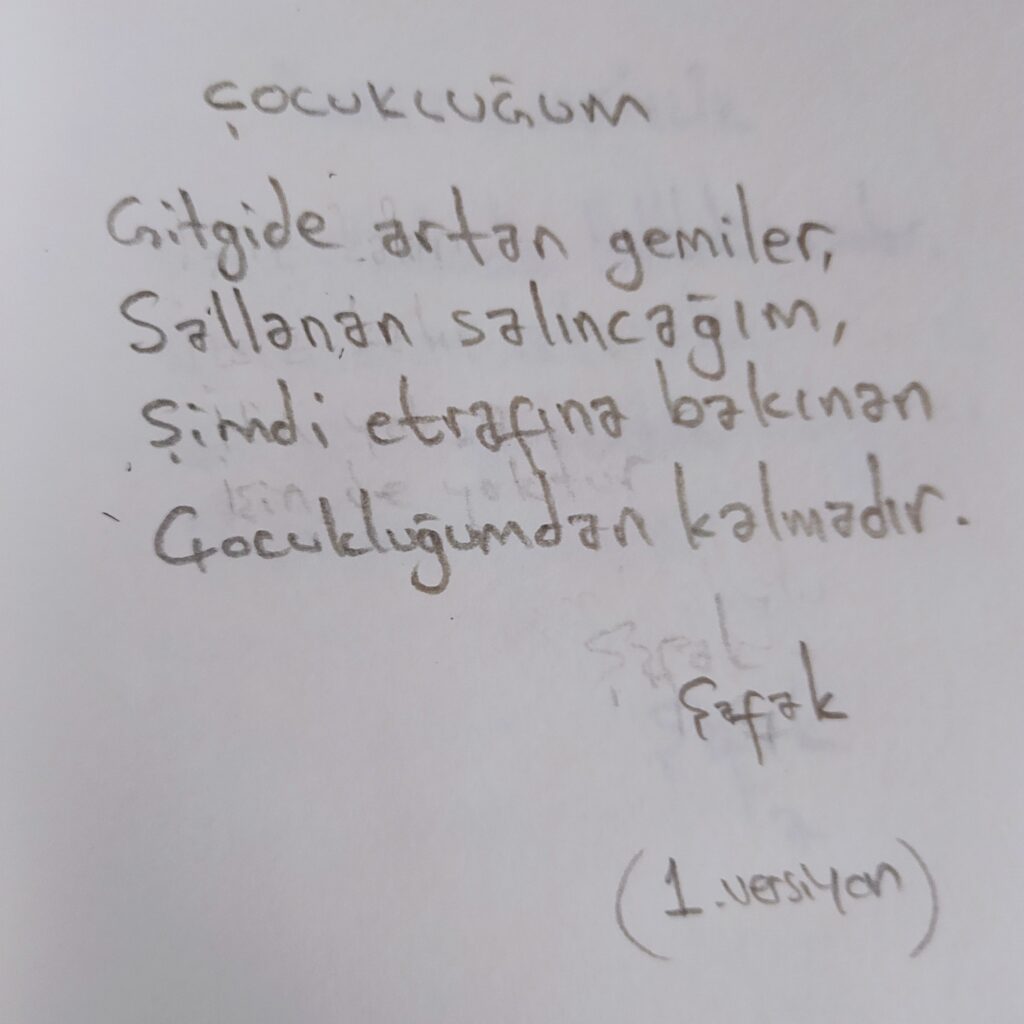 ÇOCUKLUĞUM
Gitgide artan gemiler,
Sallanan salıncağım,
Şimdi etrafına bakınan
Çocukluğumdan kalmadır.
Şafak
(1. versiyon)